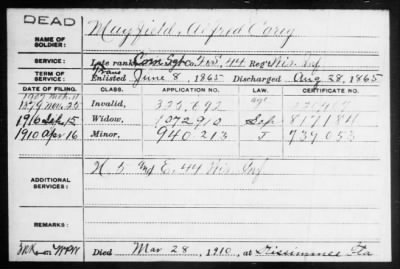 DEAD
NAME OF SOLDIER: Mayfield, Alfred Carey
SERVICE: Late rank Com Sgt Co. F & S, 44 Reg't Wis. Inf
TERM OF SERVICE: Trans Enlisted June 8, 1865 Discharged Aug 28, 1865
DATE OF FILING. CLASS. APPLICATION NO. LAW. CERTIFICATE NO.
1879 Nov. 25 Invalid, 322,692
1910 Sep 15 Widow, 1072910 817184
1910 Apr 16 Minor, 940213 739053
ADDITIONAL SERVICES: E. 44 Wis. Inf
REMARKS:
Died Mar 28, 1910, at Kissimmee Fla